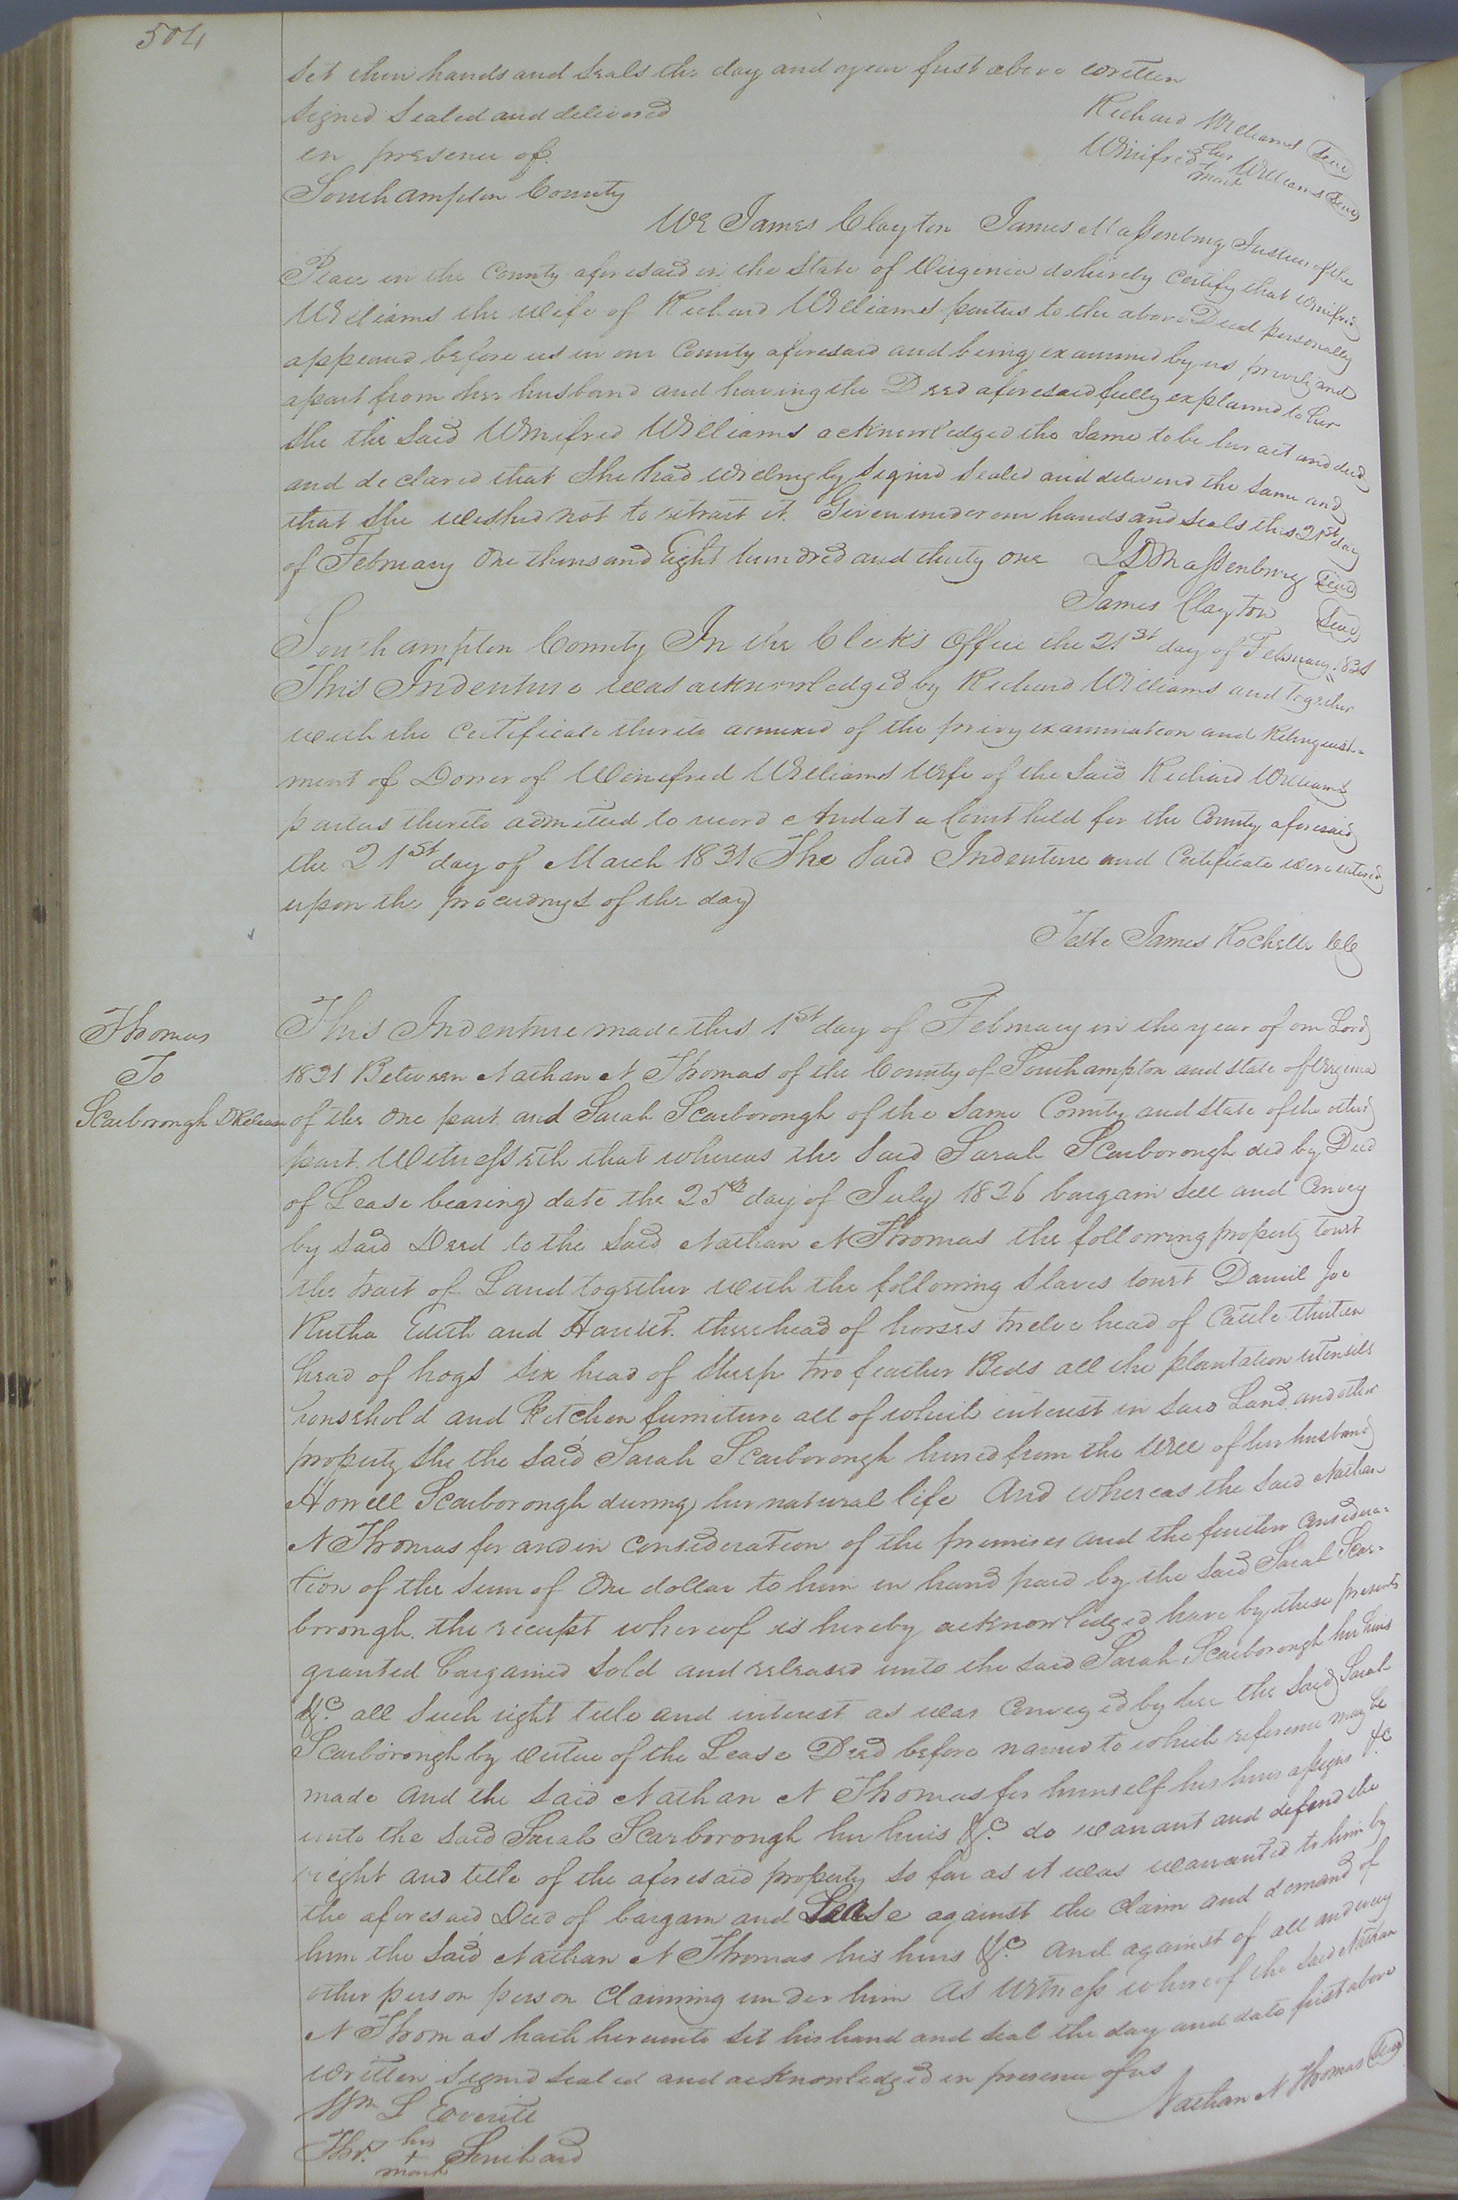 504
set their hands and seals the day and year first above written
signed sealed and delivered
in presence of
Richard Williams Seal
Winifred her + mark Williams Seal
Southampton County
We James Clayton James Massenburg Justices of the
Peace in the County aforesaid in the State of Virginia do hereby certify that Winifred
Williams the wife of Richard Williams parties to the above Deed personally
appeared before us in our County aforesaid and being examined by us privily and
apart from her husband and having the Deed aforesaid fully explained to her
She the said Winifred Williams acknowledged the same to be her act and deed
and declared that She had willingly signed sealed and delivered the same and
that she wished not to retract it. Given under our hands and seals this 21st day
of February One thousand Eight hundred and thirty one J D Massenburg Seal
James Clayton Seal
Southampton County In the Clerk's Office the 21st day of February 1831
This Indenture was acknowledged by Richard Williams and together
with the Certificate thereto annexed of the privy examination and Relinquish=
ment of Dower of Winifred Williams Wife of the said Richard Williams
parties thereto admitted to record And at a Court held for the County aforesaid
the 21st day of March 1831 The said Indenture and Certificate were entered
upon the proceedings of the day
Teste James Rochelle CC
Thomas
To
Scarborough D Release
This Indenture made this 1st day of February in the year of our Lord
1831 Between Nathan N Thomas of the County of Southampton and state of Virginia
of the one part and Sarah Scarborough of the same County and state of the other
part. Witnesseth that whereas the said Sarah Scarborough did by Deed
of Lease bearing date the 25th day of July 1826 bargain sell and Convey
by said Deed to the said Nathan N Thomas the following property towit
the tract of Land together with the following slaves towit Daniel Joe
Rutha Edith and Harriet. three head of horses twelve head of Cattle thirteen
head of hogs six head of sheep two feather Beds all the plantation utensils
household and Kitchen furniture all of which interest in said Land and other
property she the said Sarah Scarborough hired from the Will of her husband
Howell Scarborough during her natural life And whereas the said Nathan
N Thomas for and in consideration of the premises and the further considera=
tion of the sum of One dollar to him in hand paid by the said Sarah Scar=
brorough. the receipt whereof is hereby acknowledged have by these presents
granted bargained sold and released unto the said Sarah Scarborough her heirs
&c. all such right title and interest as was Conveyed by her the said Sarah
Scarborough by virtue of the Lease Deed before named to which reference may be
made and the said Nathan N Thomas for himself his heirs assigns &c
unto the said Sarah Scarborough her heirs &c. do warrant and defend the
right and title of the aforesaid property so far as it was warranted to him by
the aforesaid Deed of bargain and Lease against the claim and demand of
him the said Nathan N Thomas his heirs &c. and against of all and every
other person person Claiming under him As Witness whereof the said Nathan
N Thomas hath hereunto set his hand and seal the day and date first above
written Signed sealed and acknowledged in presence of us
Nathan N Thomas Seal
Wm L Everitt
Thos. his + mark